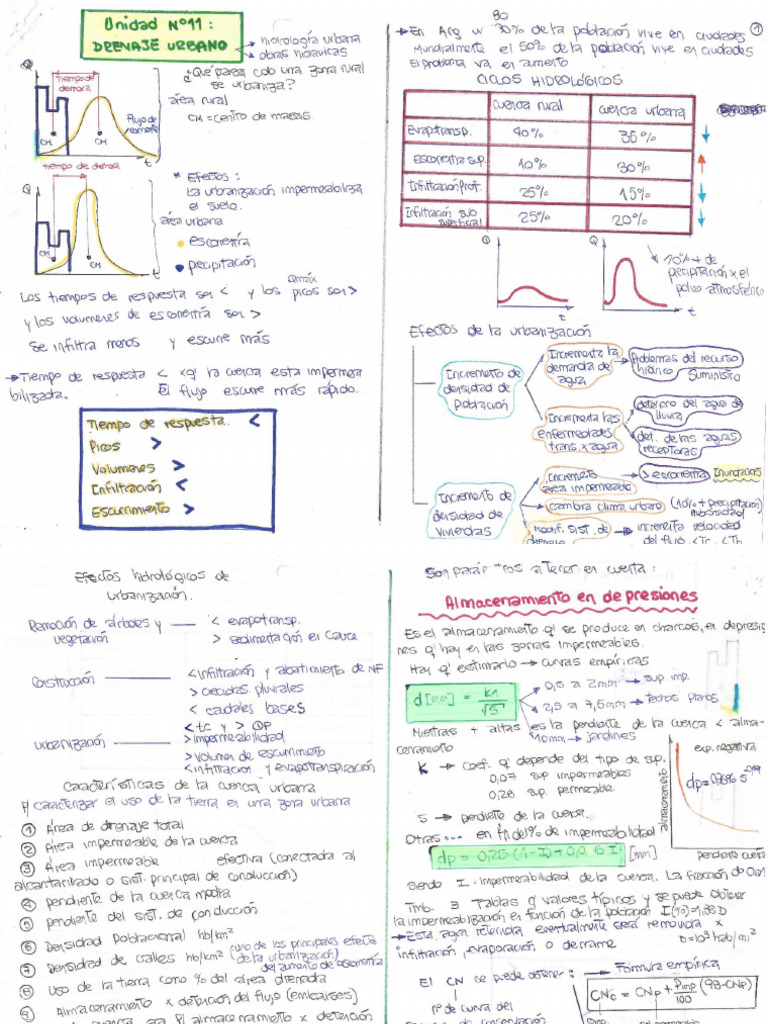 Unidad Nº11:
DRENAJE URBANO
hidrología urbana
obras hidráulicas
Q
Tiempo de demora
Flujo de
CM
CM
t
¿Qué pasa cdo una zona rural
se urbaniza?
área rural
CM = centro de masas.
tiempo de demora
Q
CM
CM
t
* Efectos:
La urbanización impermeabiliza
el suelo.
área urbana
escorrentía
precipitación
Qmáx
Los tiempos de respuesta son < y los picos son >
y los volumenes de escorrentía son >
Se infiltra menos y escurre más
→ Tiempo de respuesta < xq' la cuenca esta impermea
bilizada. El flujo escurre más rápido.
Tiempo de respuesta. <
Picos >
Volumenes >
Infiltración <
Escurrimiento >
80
1
→ En Arg. 30% de la población vive en ciudades
Mundialmente el 50% de la población vive en ciudades
El problema va en aumento
CICLOS HIDROLÓGICOS
cuenca rural cuenca urbana
Evapotransp. 40% 35% ↓
Escorrentía sup. 10% 30% ↑
Infiltración Prof. 25% 15% ↓
Infiltración sub superficial 25% 20% ↓
Q
t
Q
t
10% + de
precipitación x el
polvo atmosférico
Efectos de la urbanización
Incremento de
densidad de
población
Incrementa la
demanda de
agua
Problemas del recurso
hídrico Suministro
Incrementa las
enfermedades
trans. x agua
deterioro del agua de
lluvia
det. de las aguas
receptoras
Incremento de
densidad de
viviendas
Incremento
área impermeable
> escorrentía Inundaciones
cambia clima urbano (10% + precipitación)
nubosidad
Modif. Sist. de → incrementa velocidad
del flujo <Tr <Tb
Efectos hidrológicos de
urbanización.
Remoción de árboles y
vegetación
< evapotransp.
> sedimentación en cauce
Construcción
< infiltración y abatimiento de NF
> crecidas pluviales
< caudales bases
urbanización
< tc y > QP
> impermeabilidad
> volumen de escurrimiento
< infiltración y evapotranspiración
Características de la cuenca urbana
P/ caracterizar el uso de la tierra en una zona urbana
1 Área de drenaje total
2 Área impermeable de la cuenca
3 Área impermeable efectiva (conectada al
alcantarillado o sist. principal de conducción)
4 pendiente de la cuenca media
5 pendiente del sist. de conducción
6 Densidad Poblacional hb/km²
7 Densidad de calles hb/km² (uno de los principales efectos
de la urbanización)
8 Uso de la tierra como % del área drenada
9 Almacenamiento x detención del flujo (embalses)
Son parámetros a tener en cuenta:
Almacenamiento en depresiones
Es el almacenamiento q' se produce en charcos, en depresio
nes q' hay en las zonas impermeables.
Hay q' estimarlo → curvas empíricas
d [mm] = K1 / √S
0,5 a 2mm → sup imp.
2,5 a 7,5mm → techos planos
10mm → jardines
Mientras + altas es la pendiente de la cuenca < alma-
cenamiento
K → Coef. q' depende del tipo de sup.
0,07 sup impermeables
0,28 sup. permeable
S → pendiente de la cuenca.
almacenamiento
exp. negativa
pendiente cuenca
Otras... en fn del % de impermeabilidad
dp = 0,25 (1-I) + 0,0 6 I [mm]
siendo I: impermeabilidad de la cuenca. La fracción de
imb. ∃ Tablas q' valores típicos y se puede obtener
la impermeabilización en función de la población
→ Esta agua retenida eventualmente será removida x
infiltración, evaporación o derrame
El CN se puede obtener: Fórmula empírica
CNc = CNP + Pimp/100 (98-CNP)
nº de curva del